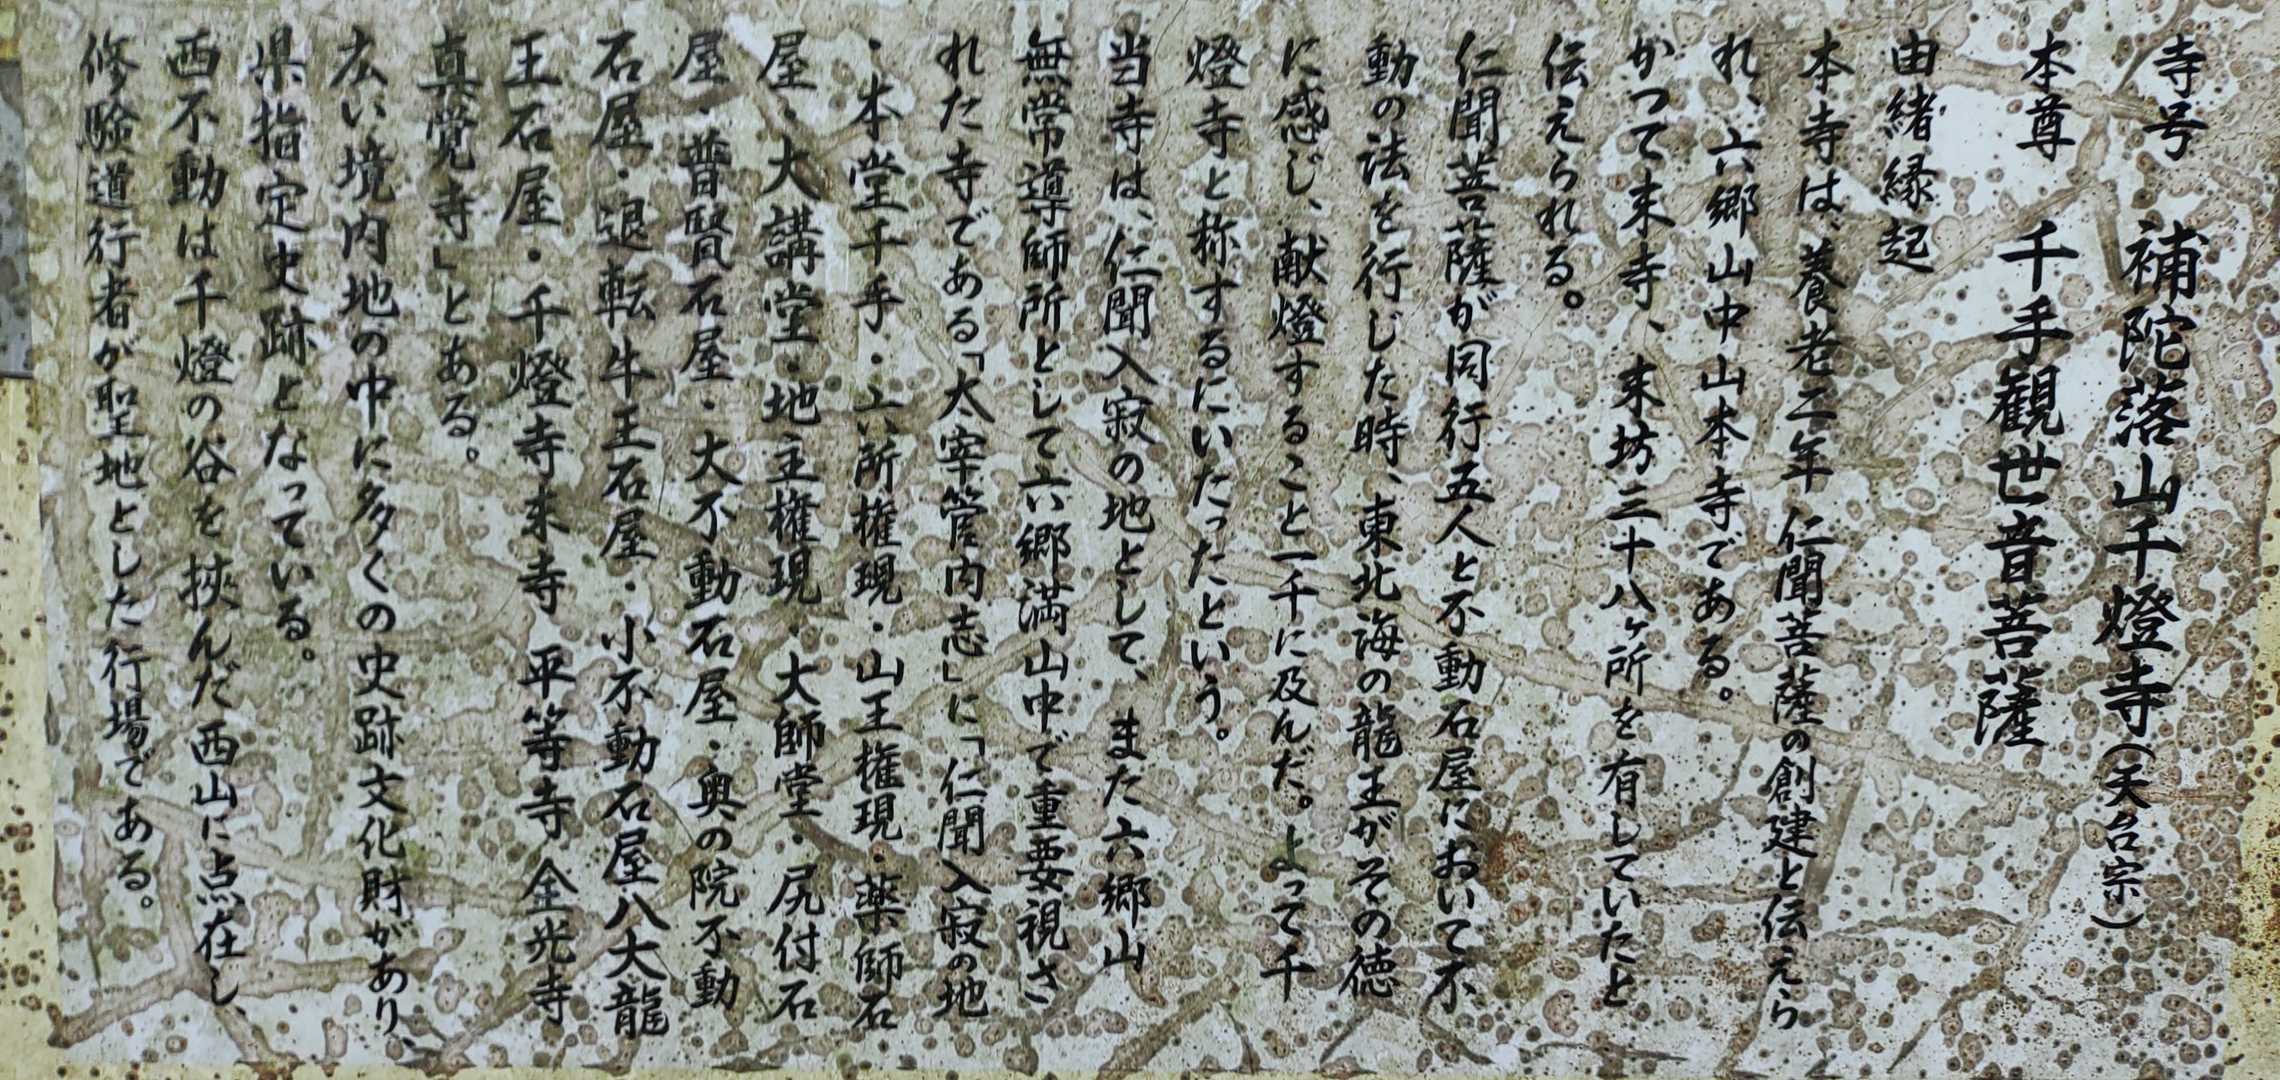 寺号　補陀落山千燈寺（天台宗）
本尊　千手観世音菩薩
由緒縁起
本寺は、養老二年 仁聞菩薩の創建と伝えら
れ、六郷山中山本寺である。
かつて末寺、末坊三十八ヶ所を有していたと
伝えられる。
仁聞菩薩が同行五人と不動石屋において不
動の法を行じた時、東北海の龍王がその徳
に感じ、献燈すること一千に及んだ。よって千
燈寺と称するにいたったという。
当寺は、仁聞入寂の地として、また六郷山
無常導師所として六郷満山中で重要視さ
れた寺である「太宰管内志」に「仁聞入寂の地
・本堂千手・六所権現・山王権現・薬師石
屋・大講堂・地主権現・大師堂・尻付石
屋・普賢石屋・大不動石屋・奥の院不動
石屋・退転牛王石屋・小不動石屋八大龍
王石屋・千燈寺末寺 平等寺 金光寺
真覚寺」とある。
広い境内地の中に多くの史跡文化財があり、
県指定史跡となっている。
西不動は千燈の谷を挾んだ西山に点在し、
修験道行者が聖地とした行場である。